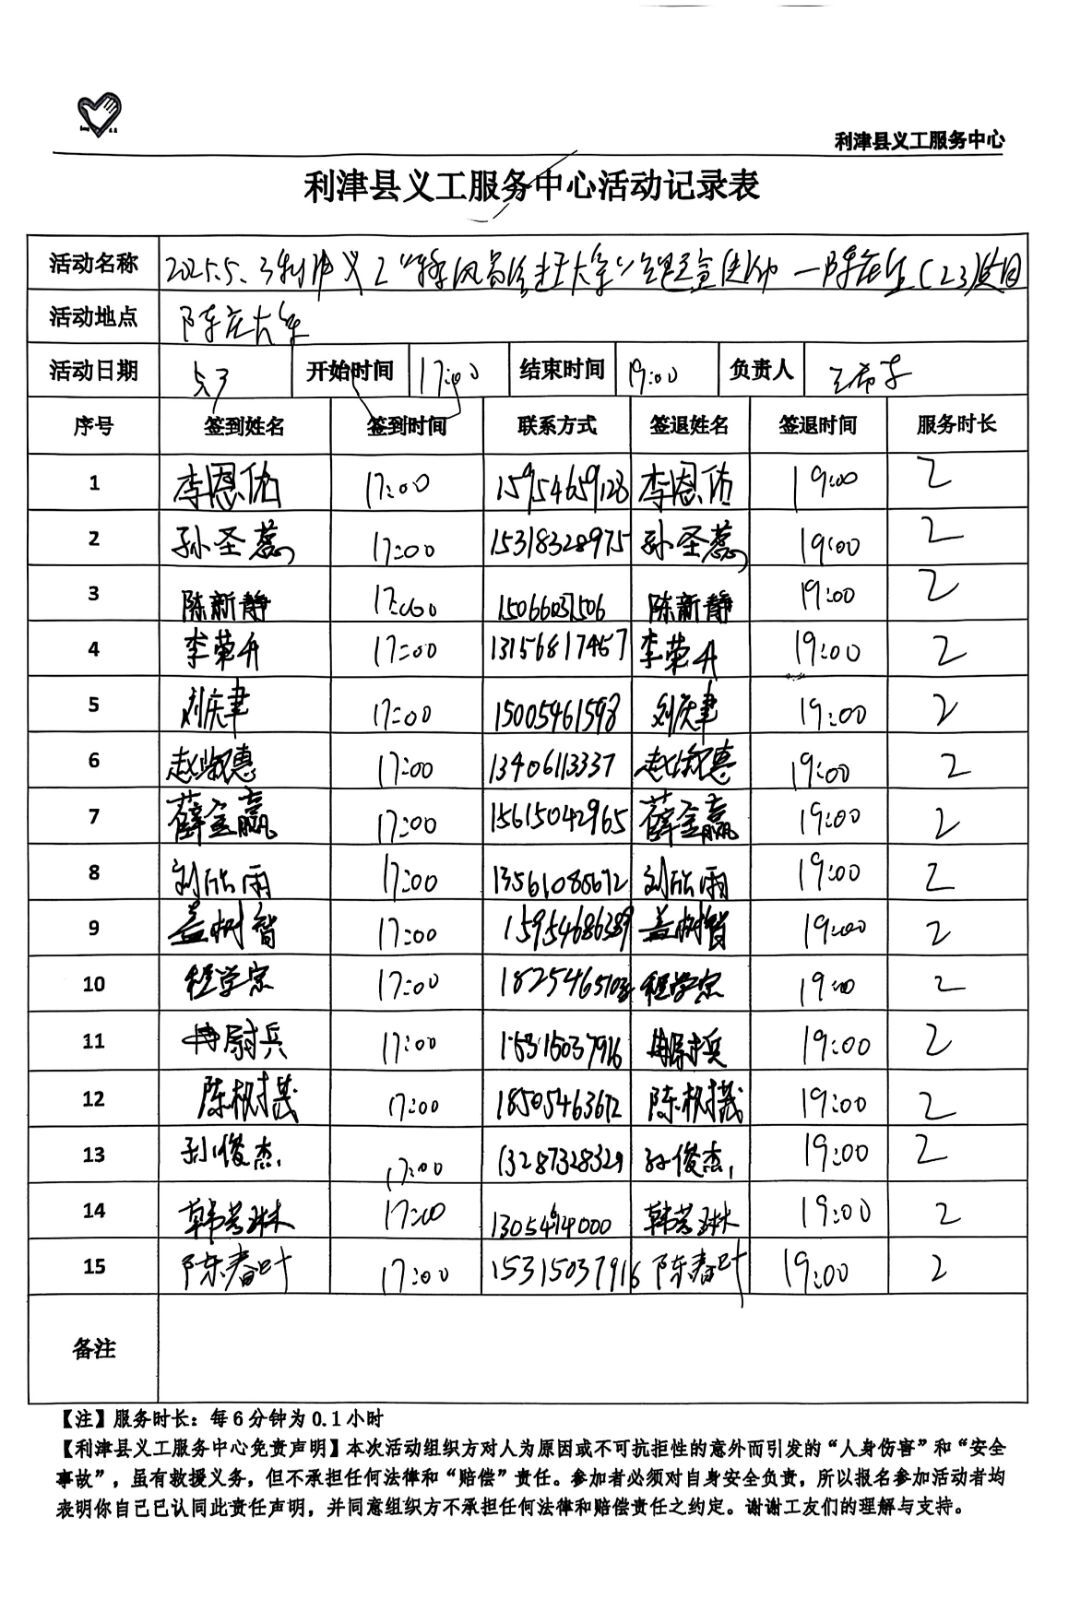 利津县义工服务中心
利津县义工服务中心活动记录表
活动名称 2025.5.3利津义工
活动地点 陈庄大集
活动日期 5.3 开始时间 17:00 结束时间 19:00 负责人 王希
序号 签到姓名 签到时间 联系方式 签退姓名 签退时间 服务时长
1 李恩佑 17:00 15954659128 李恩佑 19:00 2
2 孙圣蕊 17:00 15318328975 孙圣蕊 19:00 2
3 陈新静 17:00 15066037506 陈新静 19:00 2
4 李荣升 17:00 13156817467 李荣升 19:00 2
5 刘庆聿 17:00 15005461598 刘庆聿 19:00 2
6 赵淑惠 17:00 13406113337 赵淑惠 19:00 2
7 薛金赢 17:00 15615042965 薛金赢 19:00 2
8 刘欣雨 17:00 13561086672 刘欣雨 19:00 2
9 盖树智 17:00 15954686389 盖树智 19:00 2
10 程学宗 17:00 程学宗 19:00 2
11 冉尉兵 17:00 15315037916 冉尉兵 19:00 2
12 陈树茂 17:00 18505463672 陈树茂 19:00 2
13 孙俊杰 17:00 13287328329 孙俊杰 19:00 2
14 韩芸琳 17:00 韩芸琳 19:00 2
15 陈春叶 17:00 15315037916 陈春叶 19:00 2
备注
【注】服务时长：每6分钟为0.1小时
【利津县义工服务中心免责声明】本次活动组织方对人为原因或不可抗拒性的意外而引发的“人身伤害”和“安全
事故”，虽有救援义务，但不承担任何法律和“赔偿”责任。参加者必须对自身安全负责，所以报名参加活动者均
表明你自己已认同此责任声明，并同意组织方不承担任何法律和赔偿责任之约定。谢谢工友们的理解与支持。